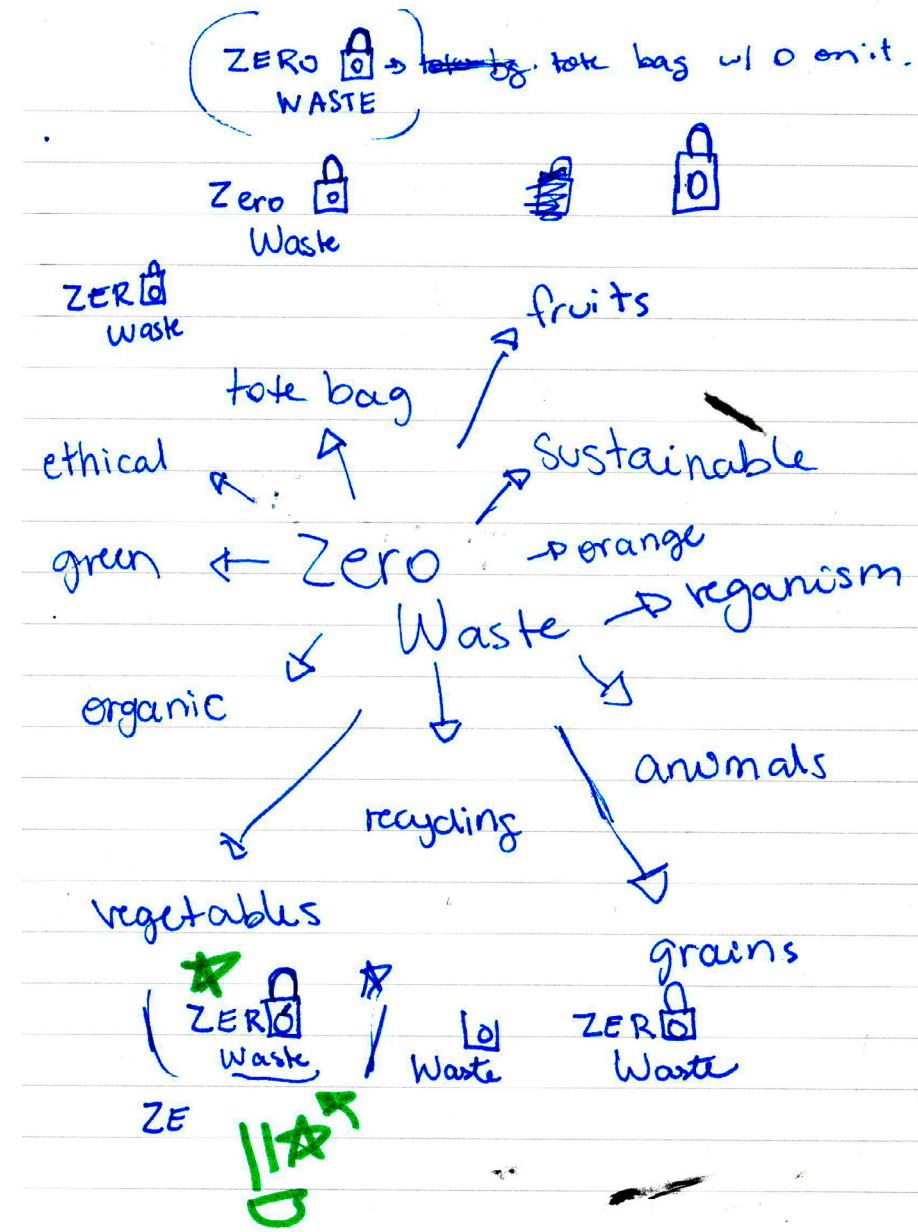 ZERO 0 → tote bag w/ 0 on it.
WASTE
Zero 0
Waste
0
ZER0
Waste
fruits
tote bag
ethical
sustainable
green
Zero
orange
Waste
veganism
organic
animals
recycling
vegetables
grains
ZER0
Waste
0
Waste
ZER0
Waste
ZE